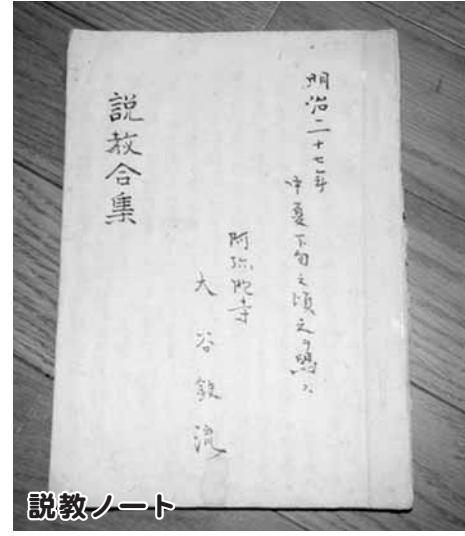 明治二十七年
中夏下旬之頃之ヲ
阿弥陀寺
大谷
説教合集
説教ノート